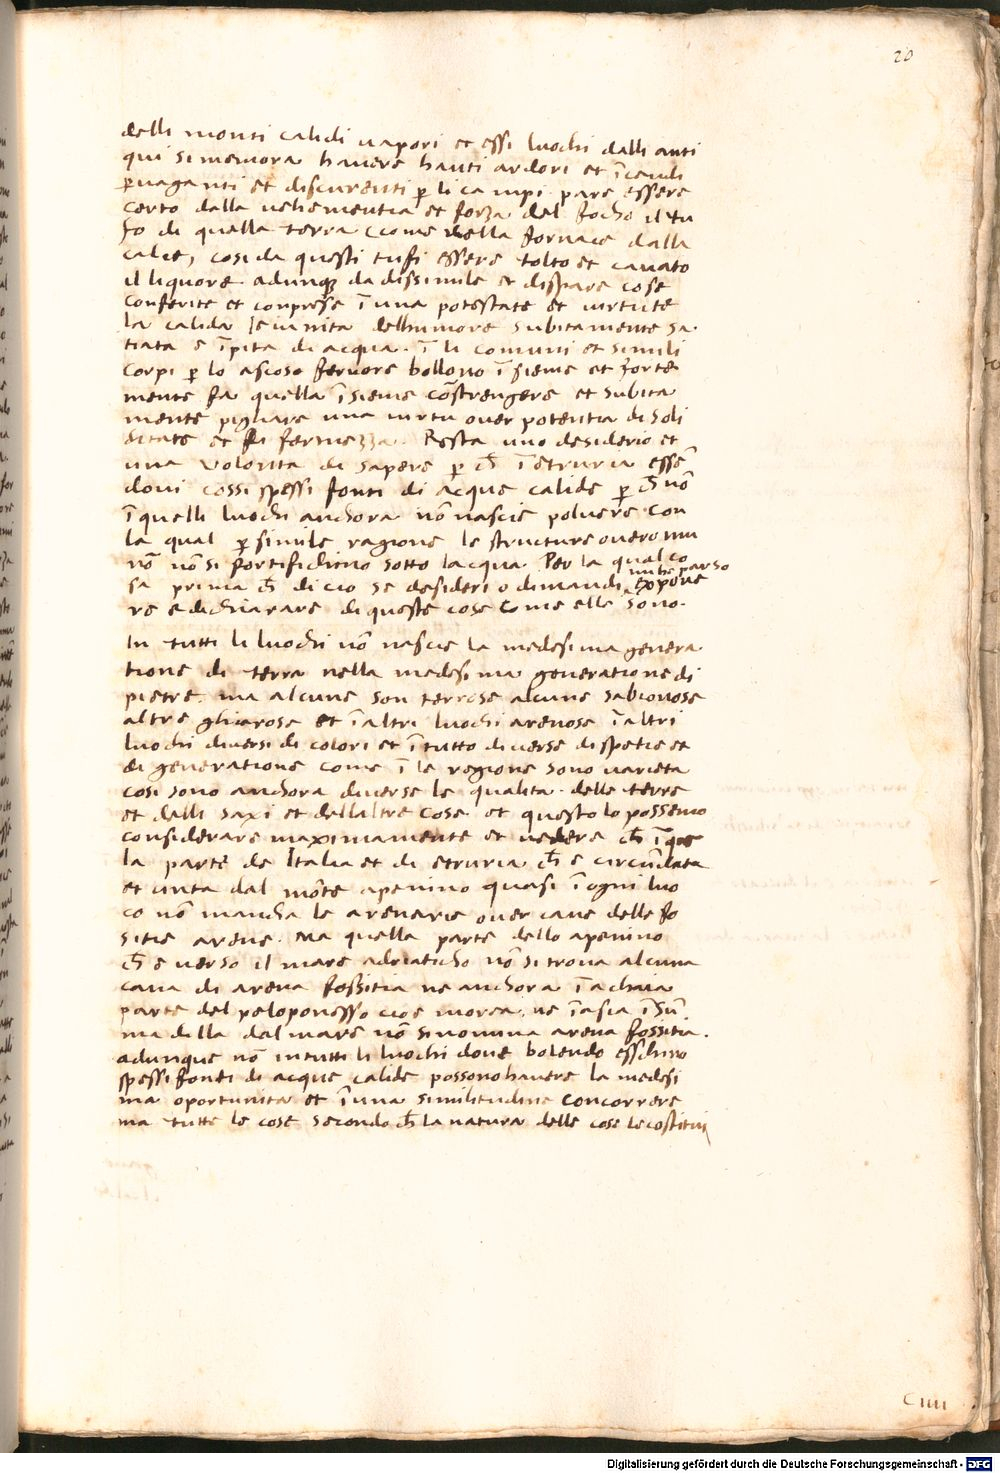 20
delli monti calidi vapori et essi luochi dalli anti
qui si memora havere hauti ardori et ĩcendi
ꝑvaganti et discurenti ꝑ li campi pare essere
certo dalla vehementia et forza del focho il tu
fo di quella terra come della fornace dalla
calce, cosi da questi tufi essere tolto et cavato
il liquore adunqꝫ da dissimile et dispare cose
conferite et conprese ĩ una potestate et virtute
la calida Ieiunita delhumore subitamente sa
tiata e ĩpita di acqua. ĩ li comuni et simili
corpi ꝑ lo ascoso fervore bollono ĩsieme et forte
mente fa quella ĩsieme cõstrengere et subita
mente pigliare una virtu over potentia di soli
ditate et di fermezza. Resta uno desiderio et
una volonta di sapere ꝑ ch̃ ĩ etruria essẽ
dovi cossi spessi fonti di acque calide ꝑ ch̃ nõ
ĩ quelli luochi anchora nõ nascie polvere con
la qual ꝑ simile ragione le structure overo mu
nõ nõ si fortifichino sotto lacqua. Per la qual co
sa prima ch̃ di cio se desideri o dimandi, mihe parso expone
re e dichiarare di queste cose come elle sono.
In tutti li luochi nõ nascie la medesima genera
tione di terra nella medesima generatione di
pietre ma alcune son terrose alcune sabionose
altre ghiarose et ĩ altri luochi arenose ĩ altri
luochi diversi di colori et ĩ tutto diverse di spetie et
di generatione come ĩ le regione sono varieta
cosi sono anchora diverse le qualita delle terre
et delli saxi et dellaltre cose et questo lo possemo
considerare maximamente et vedere ch̃ ĩ que
la parte de Italia et di etruria ch̃ e circũdata
et cinta dal mõte apenino quasi ĩ ogni luo
co nõ mancha le arenarie over cave delle fo
sitie arene. Ma quella parte dello apenino
ch̃ e verso il mare adriaticho nõ si trova alcuna
cava di arena fossitia ne anchora ĩ achaia
parte del peloponesso cioe morea, ne ĩ asia ĩ sũ
ma dilla dal mare nõ si nomina arena fossitia.
adunque nõ in tutti li luochi dove bolendo eschino
spessi fonti di acque calide possono havere la medesi
ma oportunita et ĩ una similitudine concorrere
ma tutte le cose secondo ch̃ la natura delle cose le costitui
C iiii
Digitalisierung gefördert durch die Deutsche Forschungsgemeinschaft - DFG